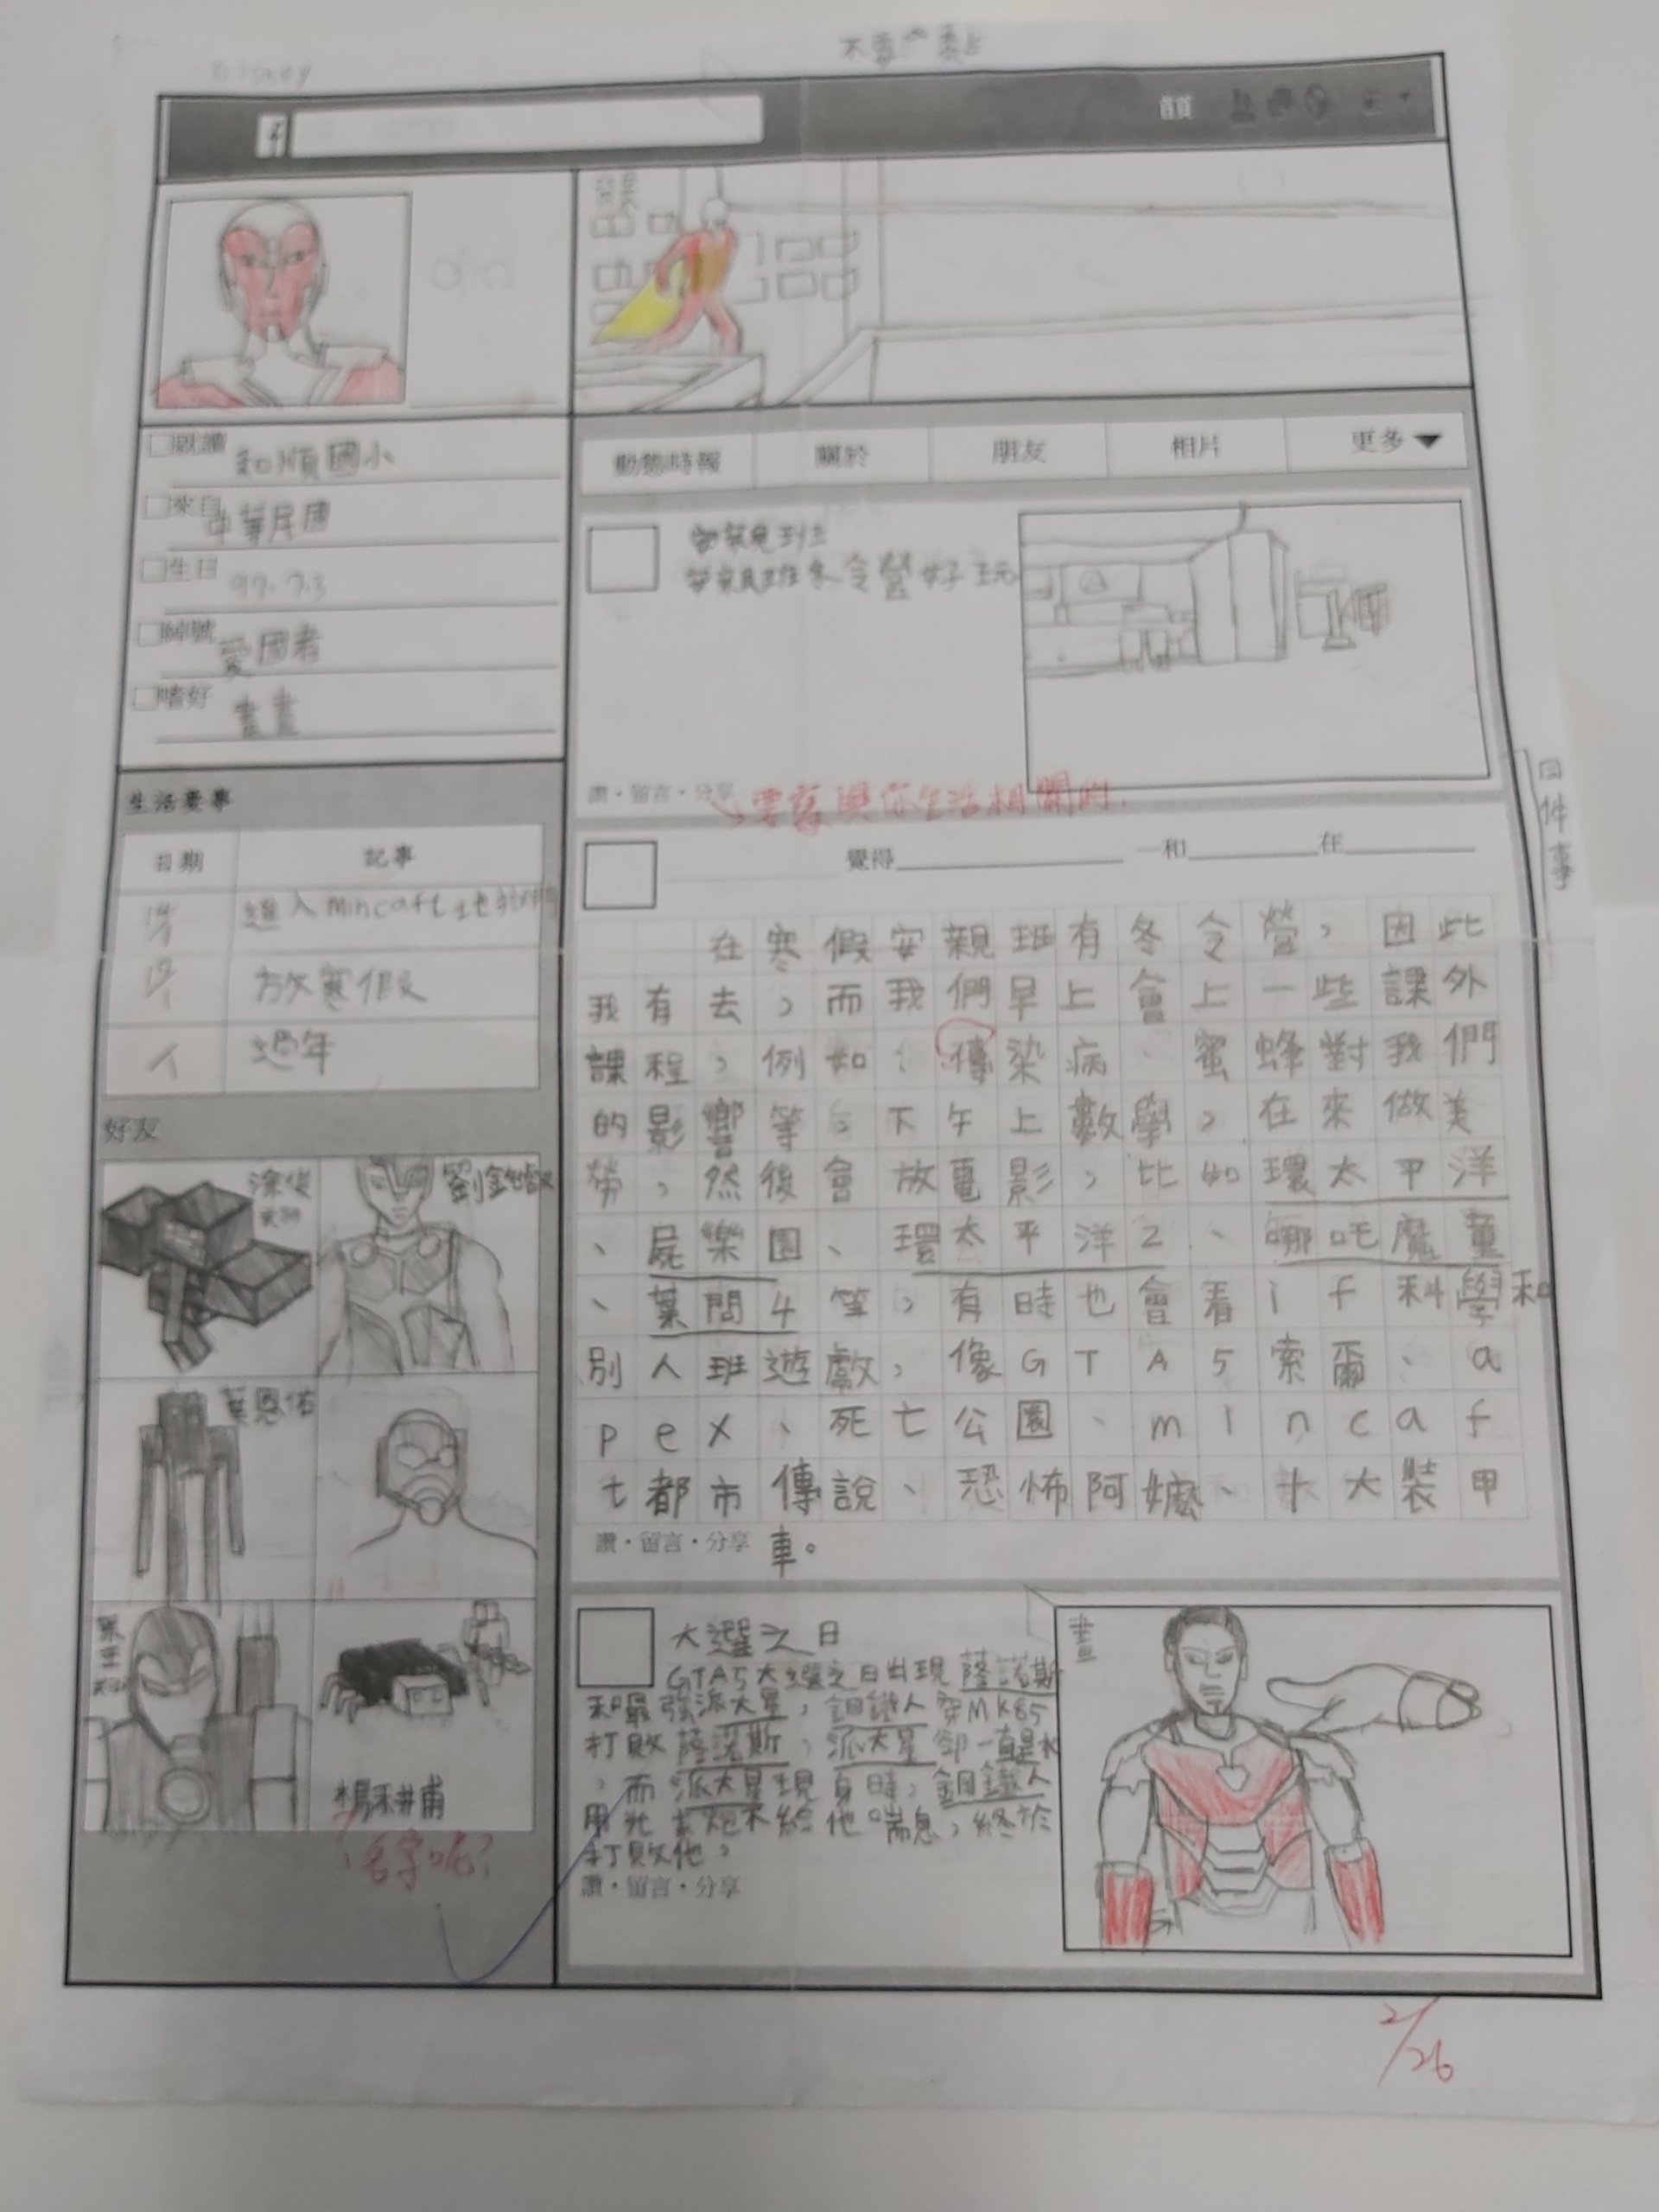 Disney
首頁
□就讀 和順國小
□來自 中華民國
□生日 97.7.3
□綽號 愛國者
□嗜好 畫畫
生活要事
日期 記事
進入mincaft地獄門
放寒假
過年
好友
劉金
葉恩佑
楊
名字呢?
背景
動態時報 關於 朋友 相片 更多▼
安親班冬令營好玩
讚・留言・分享
要舊與你生活相關的.
日
件
事
覺得 和 在
在寒假安親班有冬令營,因此
我有去,而我們早上會上一些課外
課程,例如:傳染病、蜜蜂對我們
的影響等。下午上數學,在來做美
勞,然後會放電影,比如環太甲洋
、屍樂園、環太平洋2、哪吒魔童
、葉問4等,有時也會看if科學和
別人班遊戲,像GTA5索爾、a
pex、死亡公園、mincaf
t都市傳說、恐怖阿嬤、十大裝甲
讚・留言・分享 車。
大選之日
GTA5大選之日出現薩諾斯
和最強派大星,鋼鐵人穿MK85
打敗薩諾斯,派大星卻一直是水
,而派大星現身時,鋼鐵人
用光束炮不給他喘息,終於
打敗他,
讚・留言・分享
畫
2/26